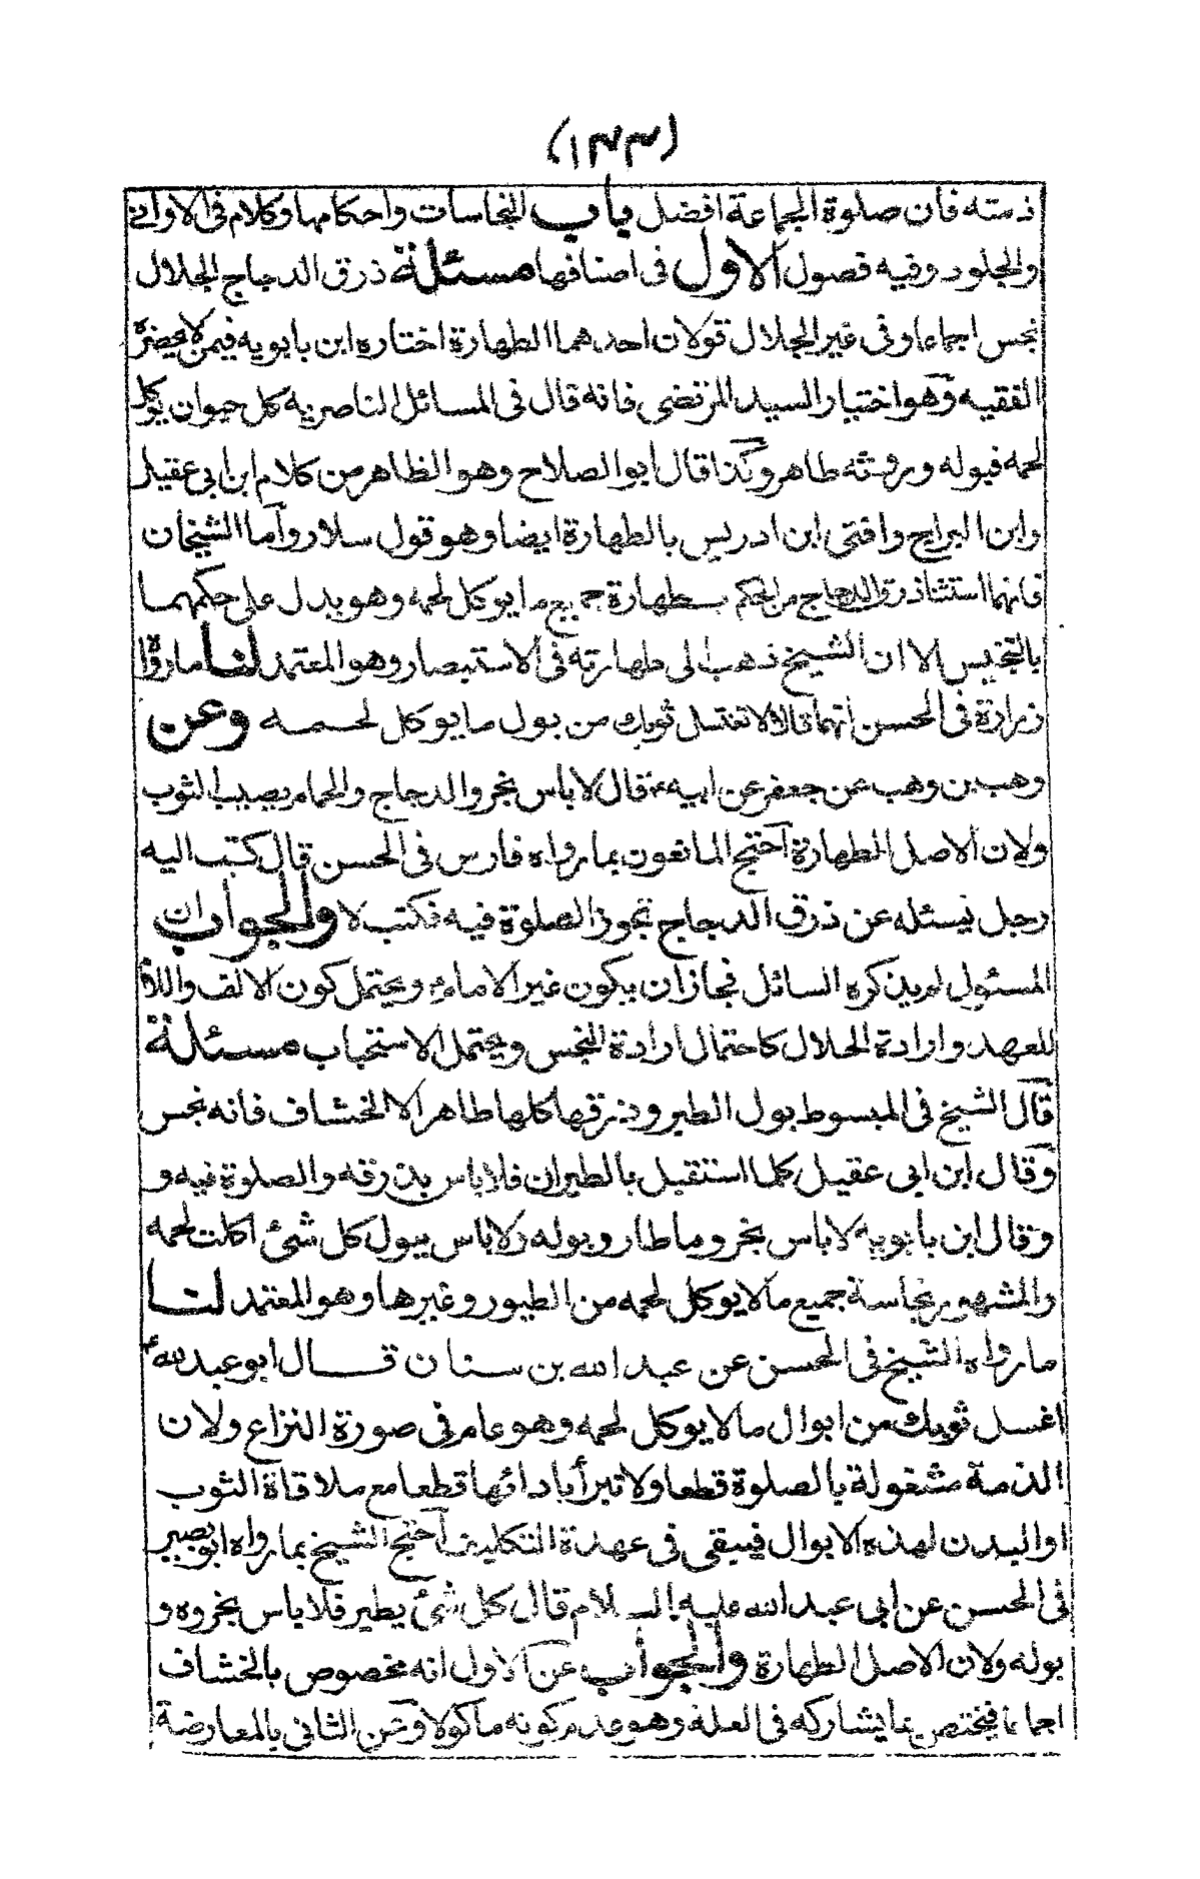 (١٣٣)
ذمته فان صلوة الجماعة افضل باب النجاسات واحكامها وكلام فى الاوانى
والجلود وفيه فصول الاول فى اصنافها مسئلة ذرق الدجاج الجلال
نجس اجماعا وفى غير الجلال قولان احدهما الطهارة اختاره ابن بابويه فيمن لا يحضره
الفقيه وهو اختيار السيد المرتضى فانه قال فى المسائل الناصرية كل حيوان يوكل
لحمه فبوله وروثه طاهر وكذا قال ابو الصلاح وهو الظاهر من كلام ابن ابى عقيل
وابن البراج وافتى ابن ادريس بالطهارة ايضا وهو قول سلار واما الشيخان
فانهما استثنا ذرق الدجاج من الحكم بطهارة جميع ما يوكل لحمه وهو يدل على حكمهما
بالتنجيس الا ان الشيخ ذهب الى طهارته فى الاستبصار وهو المعتمد لنا ما رواه
زرارة فى الحسن انهما قالا لا تغتسل ثوبك من بول ما يوكل لحمه وعن
وهب بن وهب عن جعفر عن ابيه ع قال لا باس بخرو الدجاج والحمام يصيب الثوب
ولان الاصل الطهارة احتج المانعون بما رواه فارس فى الحسن قال كتب اليه
رجل يسئله عن ذرق الدجاج تجوز الصلوة فيه فكتب لا والجواب ان
المسئول لم يذكره السائل فجاز ان يكون غير الامام ويحتمل كون الالف واللام
للعهد وارادة الحلال كاحتمال ارادة النجس ويحتمل الاستحباب مسئلة
قال الشيخ فى المبسوط بول الطير وذرقها كلها طاهر الا الخشاف فانه نجس
وقال ابن ابى عقيل كلما استقبل بالطيران فلا باس بذرقه والصلوة فيه و
وقال ابن بابويه لا باس بخرو ما طار وبوله ولا باس ببول كل شئ اكلت لحمه
والمشهور نجاسة جميع ما لا يوكل لحمه من الطيور وغيرها وهو المعتمد لنا
ما رواه الشيخ فى الحسن عن عبد الله بن سنان قال ابو عبد الله ع
اغسل ثوبك من ابوال ما لا يوكل لحمه وهو عام فى صورة النزاع ولان
الذمة مشغولة بالصلوة قطعا ولا تبرأ بادائها قطعا مع ملاقاة الثوب
او البدن لهذه الابوال فيبقى فى عهدة التكليف احتج الشيخ بما رواه ابو بصير
فى الحسن عن ابى عبد الله عليه السلام قال كل شئ يطير فلا باس بخروه و
بوله ولان الاصل الطهارة والجواب عن الاول انه مخصوص بالخشاف
اجماعا فيختص بما يشاركه فى العلة وهو عدم كونه ماكولا وعن الثانى بالمعارضة